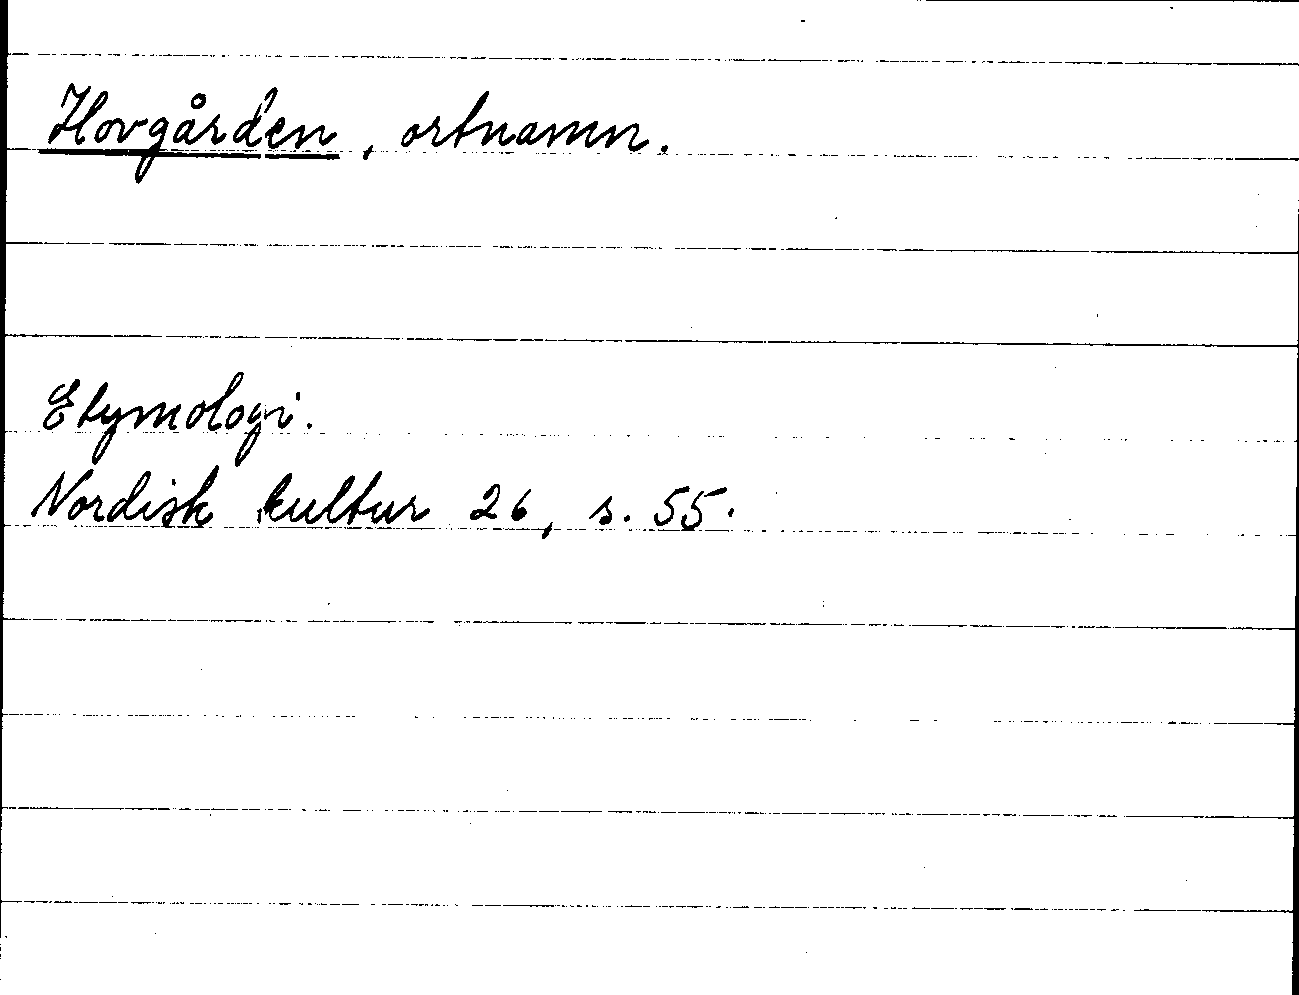 Hovgården, ortnamn.
Etymologi.
Nordisk kultur 26, s. 55.